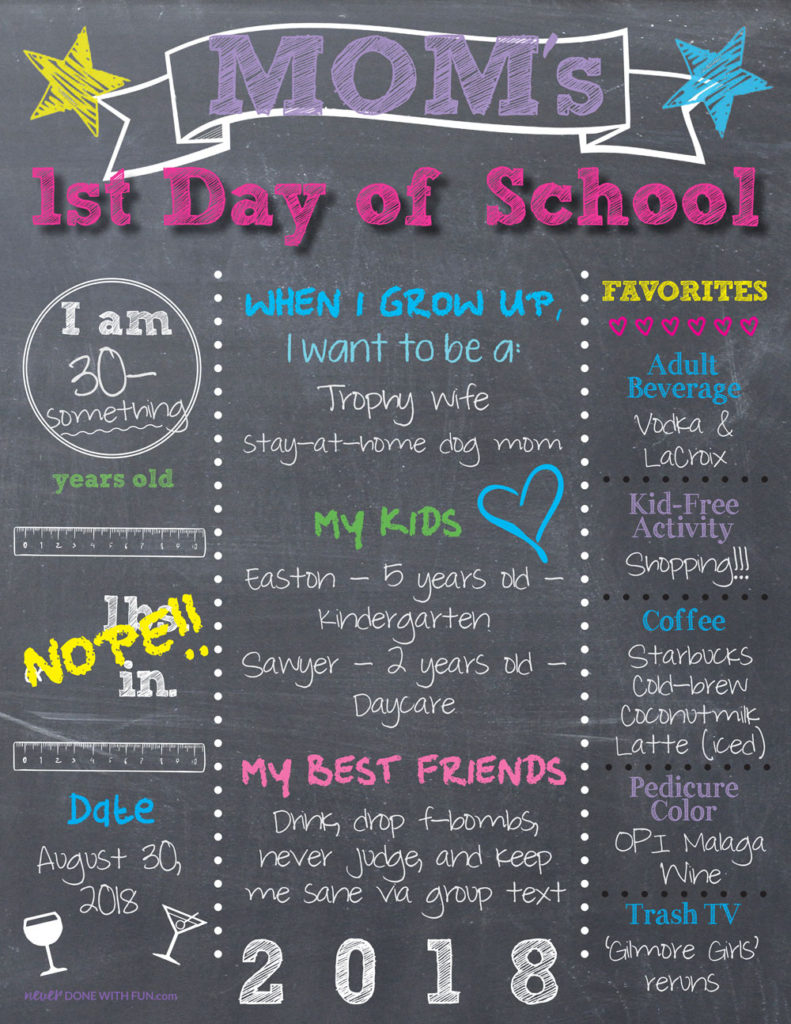 MOM's
1st Day of School
I am
30-
something
years old
0 1 2 3 4 5 6 7 8 9 10
lbs
NOPE!!
in.
0 1 2 3 4 5 6 7 8 9 10
Date
August 30,
2018
never DONE WITH FUN.com
WHEN I GROW UP,
I want to be a:
Trophy wife
stay-at-home dog mom
MY KIDS
Easton - 5 years old -
Kindergarten
Sawyer - 2 years old -
Daycare
MY BEST FRIENDS
Drink, drop f-bombs,
never judge, and keep
me sane via group text
2018
FAVORITES
Adult
Beverage
Vodka &
LaCroix
Kid-Free
Activity
Shopping!!!
Coffee
Starbucks
Cold-brew
Coconutmilk
Latte (iced)
Pedicure
Color
OPI Malaga
Wine
Trash TV
'Gilmore Girls'
reruns